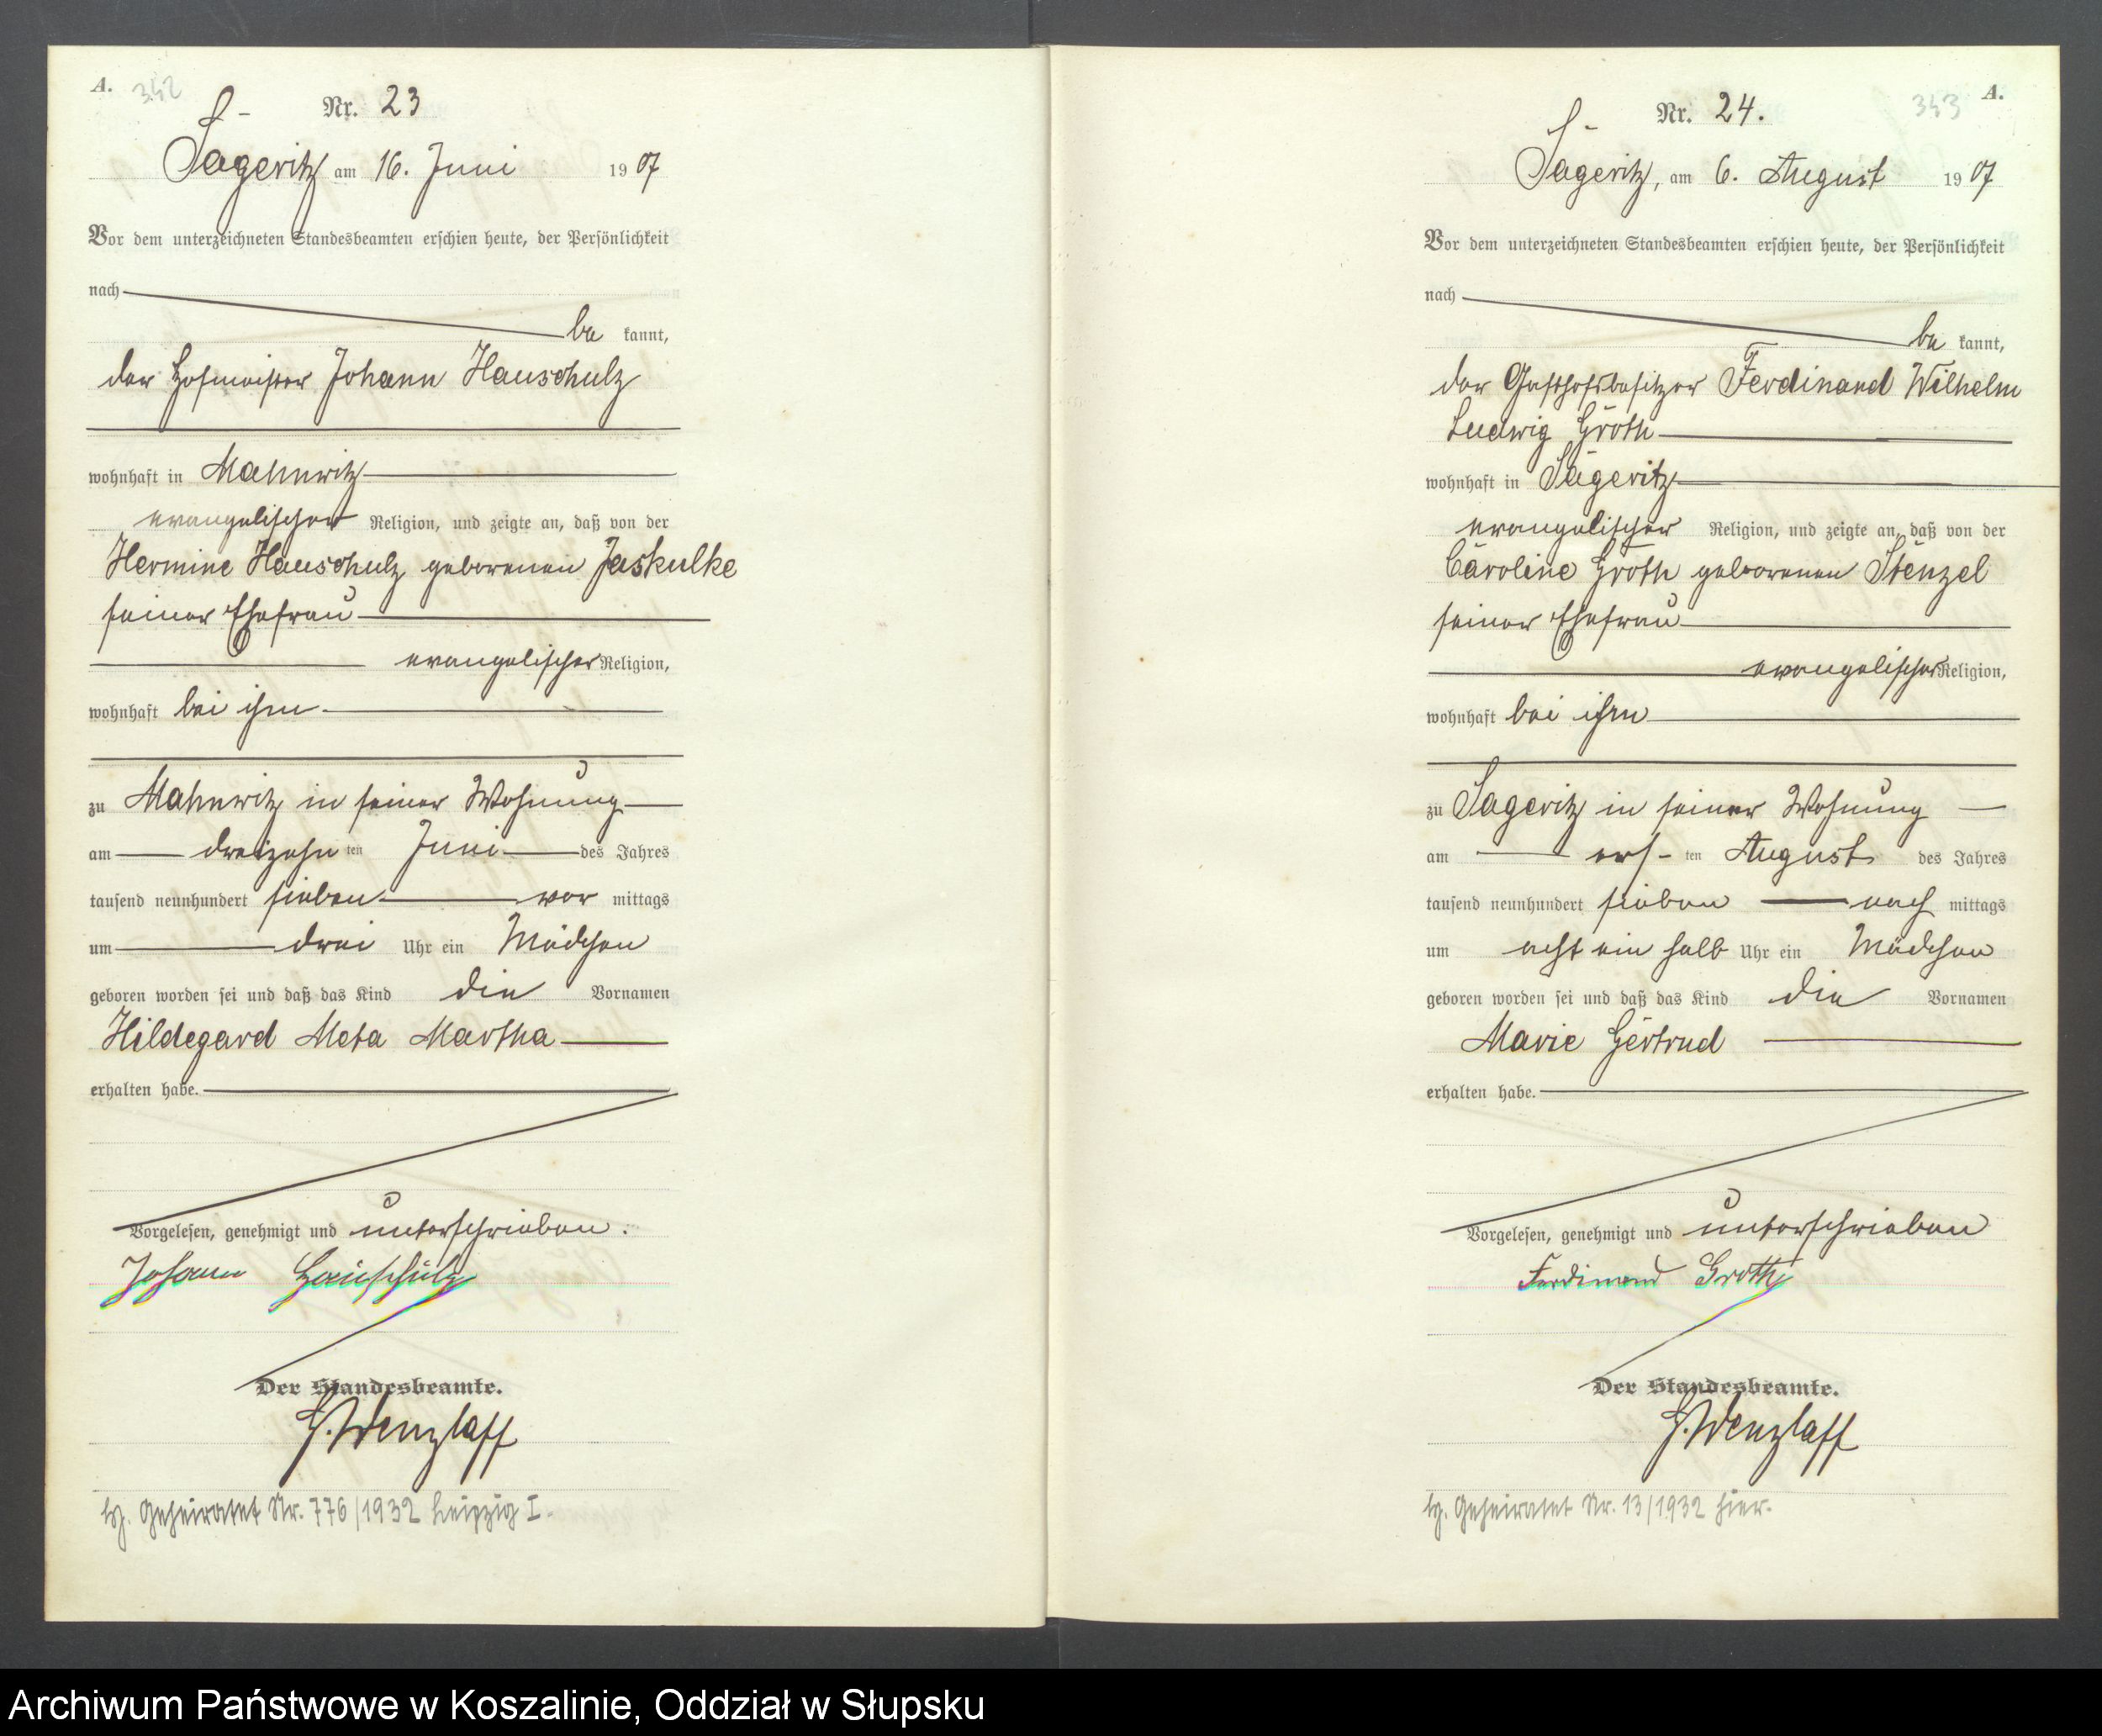 A. 342
Nr. 23
Sageritz am 16. Juni 1907
Vor dem unterzeichneten Standesbeamten erschien heute, der Persönlichkeit
nach
bekannt,
der Hofmeister Johann Hauschulz
wohnhaft in Mahnwitz
evangelischer Religion, und zeigte an, daß von der
Hermine Hauschulz geborenen Jaskulke
seiner Ehefrau
evangelischer Religion,
wohnhaft bei ihm
zu Mahnwitz in seiner Wohnung
am dreizehnten Juni des Jahres
tausend neunhundert sieben vormittags
um drei Uhr ein Mädchen
geboren worden sei und daß das Kind die Vornamen
Hildegard Meta Martha
erhalten habe.
Vorgelesen, genehmigt und unterschrieben.
Johann Hauschulz
Der Standesbeamte.
Wenzlaff
Geheiratet Nr. 776/1932 Leipzig I.
343 A.
Nr. 24.
Sageritz, am 6. August 1907
Vor dem unterzeichneten Standesbeamten erschien heute, der Persönlichkeit
nach
bekannt,
der Gasthofsbesitzer Ferdinand Wilhelm
Ludwig Groth
wohnhaft in Sageritz
evangelischer Religion, und zeigte an, daß von der
Caroline Groth geborenen Stenzel
seiner Ehefrau
evangelischer Religion,
wohnhaft bei ihm
zu Sageritz in seiner Wohnung
am ersten August des Jahres
tausend neunhundert sieben nachmittags
um acht ein halb Uhr ein Mädchen
geboren worden sei und daß das Kind die Vornamen
Marie Gertrud
erhalten habe.
Vorgelesen, genehmigt und unterschrieben
Ferdinand Groth
Der Standesbeamte.
Wenzlaff
Geheiratet Nr. 13/1932 hier.
Archiwum Państwowe w Koszalinie, Oddział w Słupsku